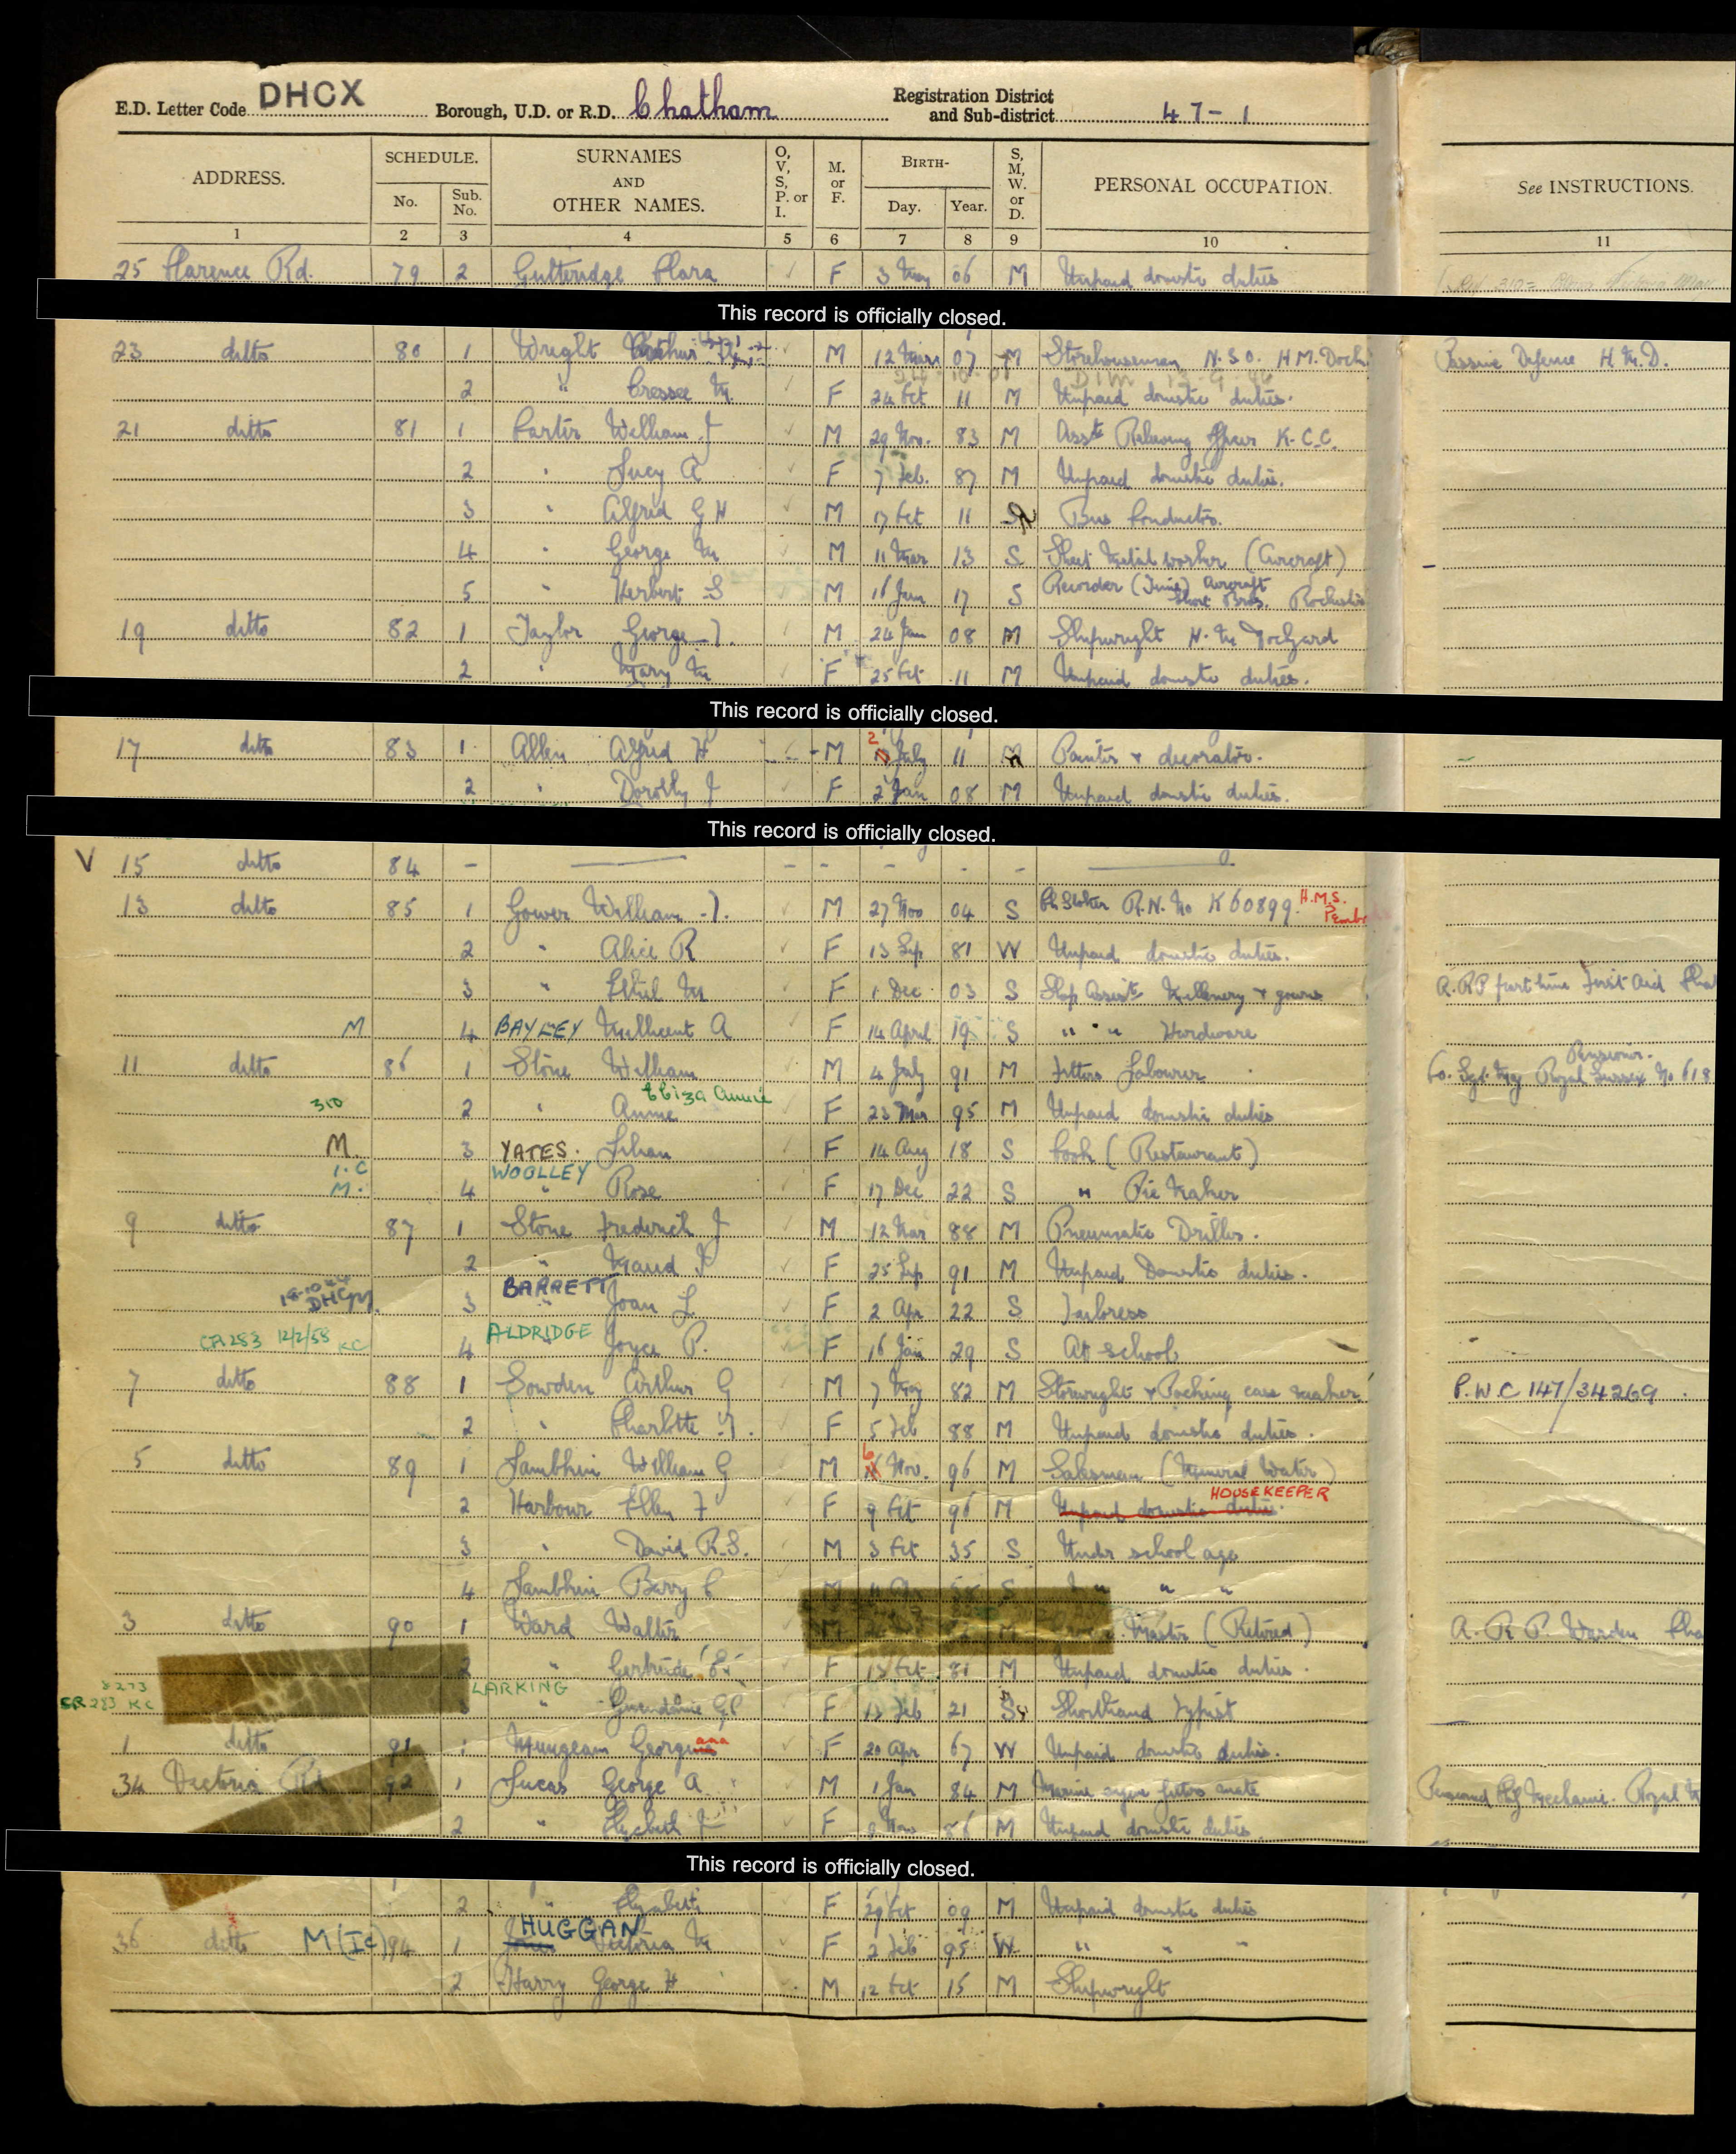 E.D. Letter Code DHCX Borough, U.D. or R.D. Chatham Registration District and Sub-district 47-1
ADDRESS. SCHEDULE. No. Sub. No. SURNAMES AND OTHER NAMES. O, V, S, P. or I. M. or F. BIRTH- Day. Year. S, M, W. or D. PERSONAL OCCUPATION. See INSTRUCTIONS.
1 2 3 4 5 6 7 8 9 10 11
25 Clarence Rd. 79 2 Gutteridge Clara F 3 May 06 M Unpaid domestic duties
This record is officially closed.
23 ditto 80 1 Wright Arthur M 12 Mar 07 M Storehouseman N.S.O. H.M. Dock Passive Defence H.M.D.
2 " Cressee M. F 24 Oct 11 M Unpaid domestic duties.
21 ditto 81 1 Carter William J M 29 Nov. 83 M Asst Relieving Officer K.C.C.
2 " Lucy A F 7 Feb. 87 M Unpaid domestic duties.
3 " Alfred G H M 17 Oct 11 Bus Conductor.
4 " George M M 11 Mar 13 S Sheet Metal worker (Aircraft)
5 " Herbert S M 16 Jan 17 S Recorder (Time) Aircraft Short Bros. Rochester
19 ditto 82 1 Taylor George T. M 24 Jan 08 M Shipwright H.M Dockyard
2 " Mary M F 25 Oct 11 M Unpaid domestic duties.
This record is officially closed.
17 ditto 83 1 Allen Alfred H M 2 July 11 M Painter & decorator.
2 " Dorothy J F 2 Jan 08 M Unpaid domestic duties.
This record is officially closed.
V 15 ditto 84 - - - - - -
13 ditto 85 1 Gower William T. M 27 Nov 04 S Ch. Stoker R.N. No K60899. H.M.S. Pemb
2 " Alice R F 13 Sep 81 W Unpaid domestic duties.
3 " Ethel M F 1 Dec 03 S Shop Assist. Millinery & gowns A.R.P part time First Aid Chat
M 4 BAYLEY Millicent A F 14 April 19 S " " " Hardware
11 ditto 86 1 Stone William M 4 July 91 M Fitters Labourer Pensioner. Co. Sgt. Maj Royal Sussex No 618
310 2 " Annie Eliza Annie F 23 Mar 95 M Unpaid domestic duties
M. 3 YATES. Lilian F 14 Aug 18 S Cook (Restaurant)
I.C M. 4 WOOLLEY " Rose F 17 Dec 22 S " Pie Maker
9 ditto 87 1 Stone Frederick J M 12 Mar 88 M Pneumatic Driller.
2 " Maud F 25 Sep 91 M Unpaid Domestic duties.
3 BARRETT " Joan L F 2 Apr 22 S Tailoress
CR283 12/2/58 KC 4 ALDRIDGE " Joyce P. F 16 Jan 29 S At school
7 ditto 88 1 Sowden Arthur G M 7 May 82 M & Packing case maker P.W.C 147/34269.
2 " Charlotte T. F 5 Feb 88 M Unpaid domestic duties.
5 ditto 89 1 Lambkin William G M 6 Nov. 96 M Salesman (Mineral Water)
2 Harbour Ellen F F 9 Oct 96 M Unpaid domestic duties. HOUSEKEEPER
3 " David R.S. M 3 Oct 35 S Under school age
4 Lambkin Barry C M S " " "
3 ditto 90 1 Ward Walter M M Master (Retired) A.R.P. Warden Cha
2 " Gertrude E F 13 Oct 81 M Unpaid domestic duties.
CR283 KC LARKING " Gwendoline G.C F 13 Feb 21 S Shorthand Typist
1 ditto 91 1 Mungeam Georgiana F 20 Apr 67 W Unpaid domestic duties.
34 Victoria Rd 92 1 Lucas George A M 1 Jan 84 M Marine engine fitters mate Pensioned Mechanic. Royal N
2 " Elizabeth J F 9 Nov 86 M Unpaid domestic duties
This record is officially closed.
2 " Elizabeth F 29 Oct 09 M Unpaid domestic duties
36 ditto M(IC) 94 1 HUGGAN Victoria M F 2 Feb 95 W " " "
2 Harry George H M 12 Oct 15 M Shipwright